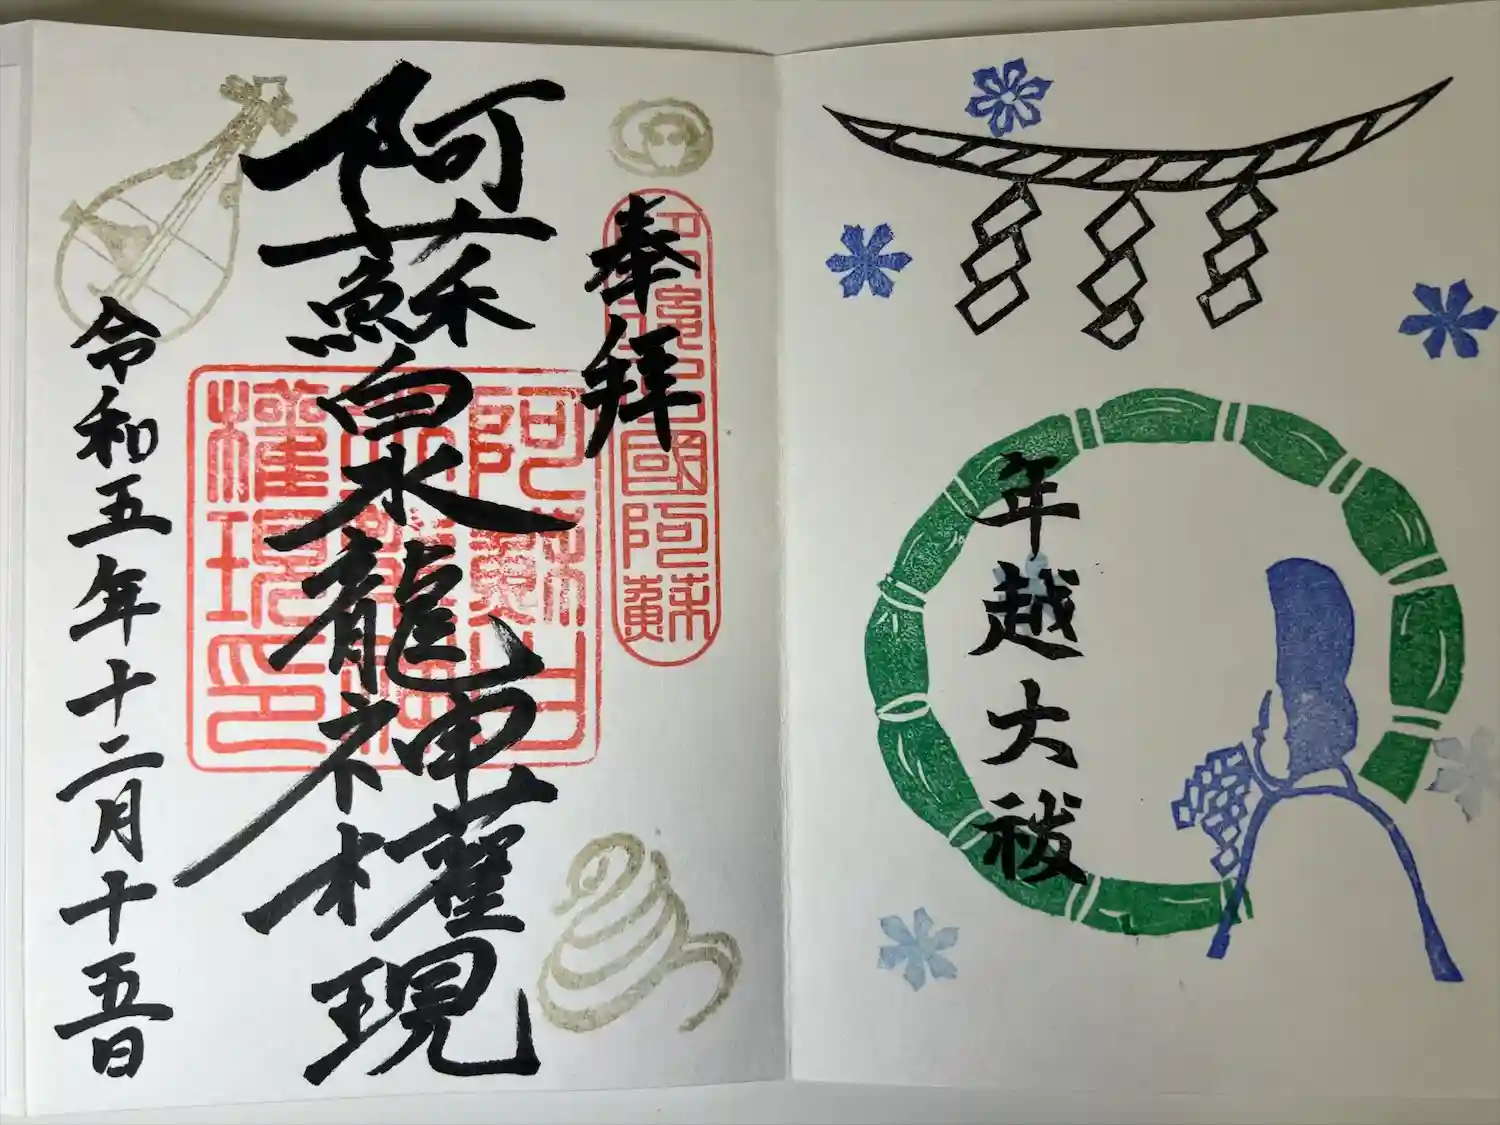 年越大祓
奉拝
國阿蘇
阿蘇白水龍神權現
阿蘇白
水龍神
權現印
令和五年十二月十五日